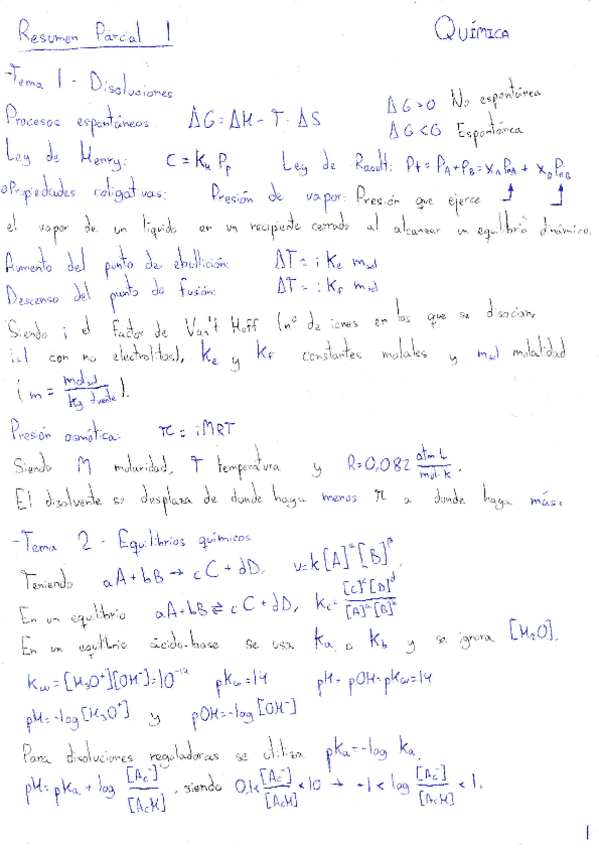 Resumen Parcial 1 QUÍMICA
-Tema 1 - Disoluciones
Procesos espontáneos: ΔG = ΔH - T · ΔS ΔG>0 No espontánea
ΔG<0 Espontánea
Ley de Henry: C = K_H P_p Ley de Raoult: Pt = P_A + P_B = x_A P_0A + x_B P_0B
Propiedades coligativas: Presión de vapor: Presión que ejerce
el vapor de un líquido en un recipiente cerrado al alcanzar un equilibrio dinámico.
Aumento del punto de ebullición: ΔT = i K_e m_sol
Descenso del punto de fusión: ΔT = i K_f m_sol
Siendo i el Factor de Van't Hoff (nº de iones en los que se disocian,
i=1 con no electrolitos), K_e y K_f constantes molales y m_sol molalidad
(m = mol_sol / kg_dvente).
Presión osmótica: π = iMRT
Siendo M molaridad, T temperatura y R=0,082 atm·L / mol·K.
El disolvente se desplaza de donde haya menos π a donde haya más.
-Tema 2 - Equilibrios químicos
Teniendo aA+bB → cC + dD, v=k[A]^α[B]^β.
En un equilibrio aA+bB ⇄ cC + dD, K_c = [C]^c[D]^d / [A]^a[B]^b
En un equilibrio ácido-base se usa K_a o K_b y se ignora [H₂O].
K_w = [H₃O⁺][OH⁻] = 10⁻¹⁴ pK_w = 14 pH - pOH = pK_w = 14
pH = -log[H₃O⁺] y pOH = -log[OH⁻]
Para disoluciones reguladoras se utiliza pKa = -log ka.
pH = pKa + log [Ac⁻] / [AcH], siendo 0,1 < [Ac⁻] / [AcH] < 10 → -1 < log [Ac⁻] / [AcH] < 1.
1